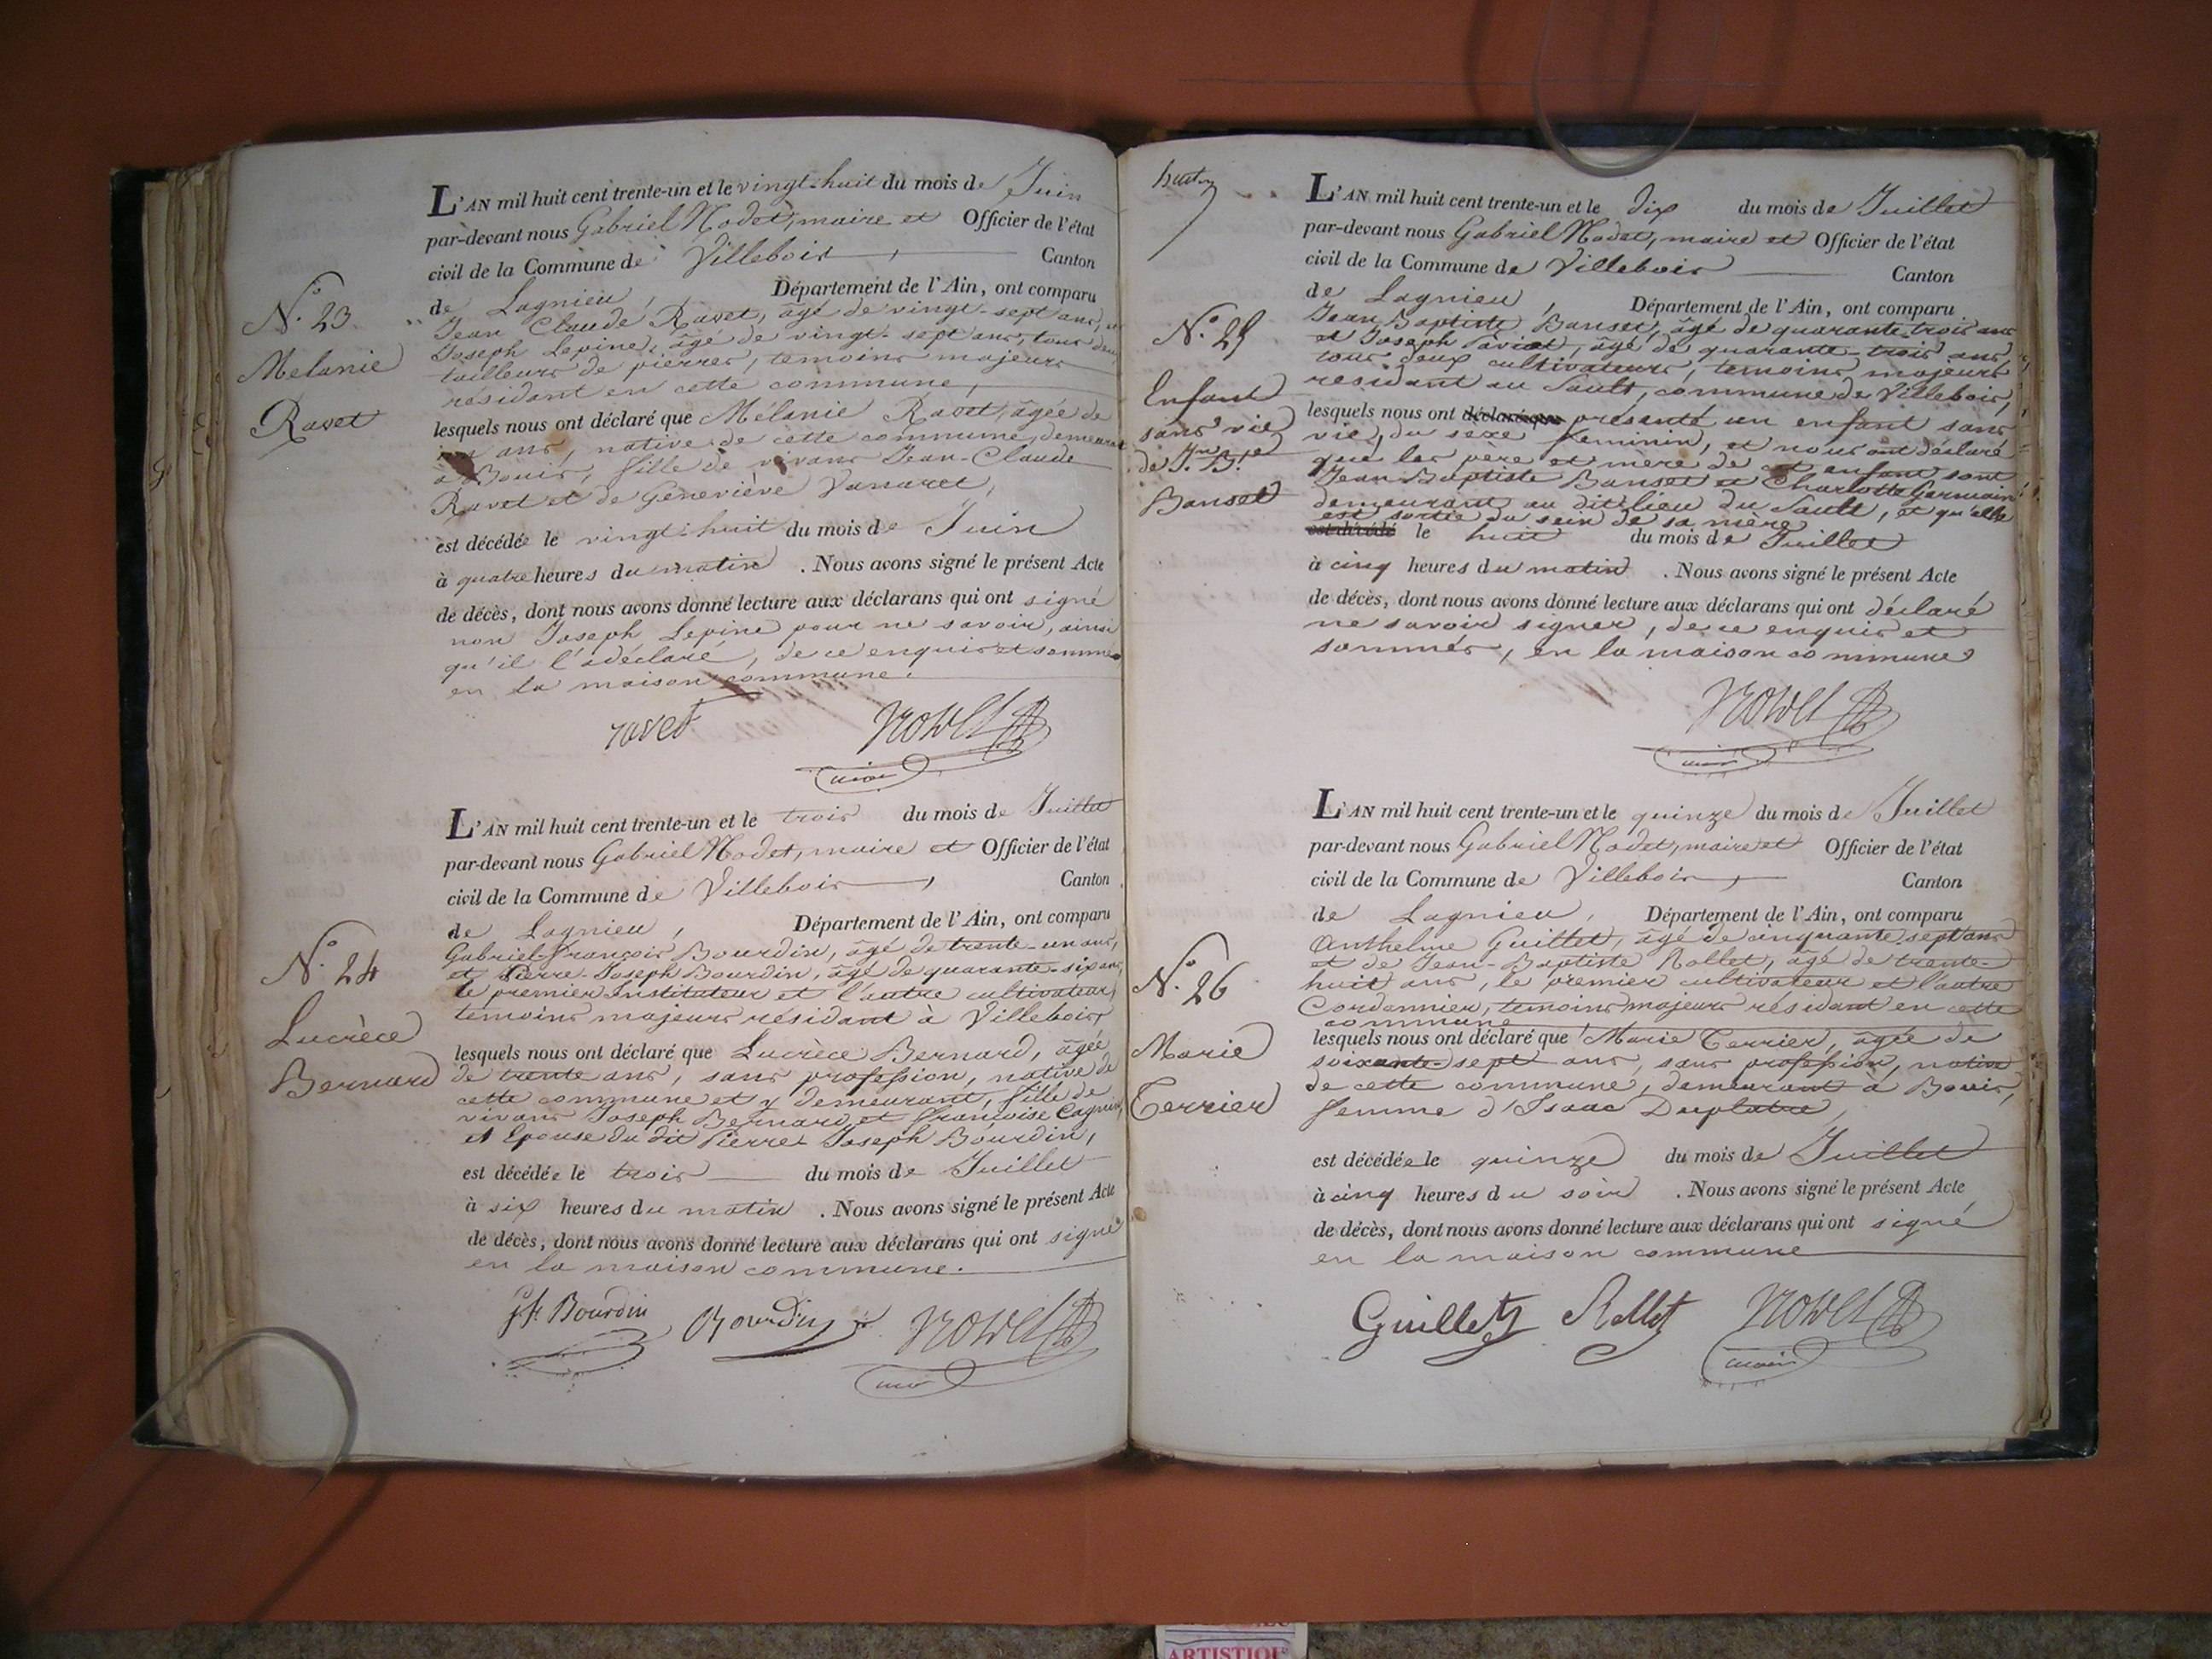 L'AN mil huit cent trente-un et le vingt-huit du mois de Juin
par-devant nous Gabriel Nodet, maire et Officier de l'état
civil de la Commune de Villebois, Canton
de Lagnieu, Département de l'Ain, ont comparu
N.° 23
Melanie
Ravet
Jean Claude Ravet, âgé de vingt-sept ans, et
Joseph Lepine, âgé de vingt-sept ans, tous deux
tailleurs de pierres, temoins majeurs
résidant en cette commune,
lesquels nous ont déclaré que Mélanie Ravet, âgée de
ans, native de cette commune, demeurant
à Bouis, fille de vivans Jean-Claude
Ravet et de Geneviève Vanaret,
est décédée le vingt-huit du mois de Juin
à quatre heures du matin. Nous avons signé le présent Acte
de décès, dont nous avons donné lecture aux déclarans qui ont signé
non Joseph Lepine pour ne savoir, ainsi
qu'il l'a déclaré, de ce enquis et sommé
en la maison commune.
ravet Nodet
maire
L'AN mil huit cent trente-un et le trois du mois de Juillet
par-devant nous Gabriel Nodet, maire et Officier de l'état
civil de la Commune de Villebois, Canton
de Lagnieu, Département de l'Ain, ont comparu
N.° 24
Lucrèce
Bernard
Gabriel-François Bourdin, âgé de trente-un ans,
et Pierre-Joseph Bourdin, âgé de quarante-six ans,
le premier Instituteur et l'autre cultivateur,
temoins majeurs résidant à Villebois
lesquels nous ont déclaré que Lucrèce Bernard, âgée
de trente ans, sans profession, native de
cette commune et y demeurant, fille de
vivans Joseph Bernard et Françoise
et Epouse du dit Pierre-Joseph Bourdin,
est décédée le trois du mois de Juillet
à six heures du matin. Nous avons signé le présent Acte
de décès, dont nous avons donné lecture aux déclarans qui ont signé
en la maison commune.
G.F. Bourdin Bourdin Nodet
maire
L'AN mil huit cent trente-un et le dix du mois de Juillet
par-devant nous Gabriel Nodet, maire et Officier de l'état
civil de la Commune de Villebois Canton
de Lagnieu, Département de l'Ain, ont comparu
N.° 25
Enfant
sans vie
de Jn. Bte
Banset
Jean Baptiste Banset, âgé de quarante-trois ans
et Joseph Paviot, âgé de quarante-trois ans,
tous deux cultivateurs, temoins majeurs
résidant au Sault, commune de Villebois,
lesquels nous ont déclaré que présenté un enfant sans
vie, du sexe feminin, et nous ont déclaré
que les père et mère de cet enfant sont
Jean Baptiste Banset et Charlotte Germain
demeurant au dit lieu du Sault, et qu'elle
est sortie du sein de sa mère
est décédé le huit du mois de Juillet
à cinq heures du matin. Nous avons signé le présent Acte
de décès, dont nous avons donné lecture aux déclarans qui ont déclaré
ne savoir signer, de ce enquis et
sommés, en la maison commune
Nodet
maire
L'AN mil huit cent trente-un et le quinze du mois de Juillet
par-devant nous Gabriel Nodet, maire et Officier de l'état
civil de la Commune de Villebois, Canton
de Lagnieu, Département de l'Ain, ont comparu
N.° 26
Marie
Terrier
Anthelme Guillet, âgé de cinquante-sept ans
et de Jean-Baptiste Rollet, âgé de trente-
huit ans, le premier cultivateur et l'autre
Cordonnier, temoins majeurs résidant en cette
commune
lesquels nous ont déclaré que Marie Terrier, âgée de
soixante-sept ans, sans profession, native
de cette commune, demeurant à Bouis,
femme d'Isaac Duplatre,
est décédée le quinze du mois de Juillet
à cinq heures du soir. Nous avons signé le présent Acte
de décès, dont nous avons donné lecture aux déclarans qui ont signé
en la maison commune
Guillet Rollet Nodet
maire
ARTISTIQUE